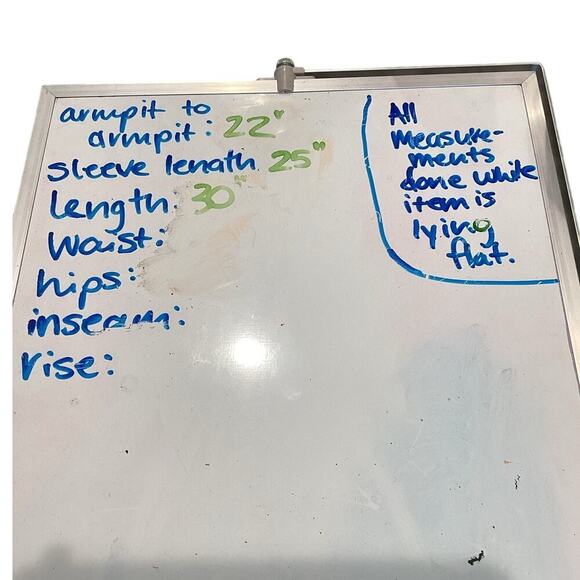 armpit to
armpit: 22"
sleeve length 25"
Length: 30"
Waist:
hips:
inseam:
rise:
All
measure-
ments
done while
item is
lying
flat.